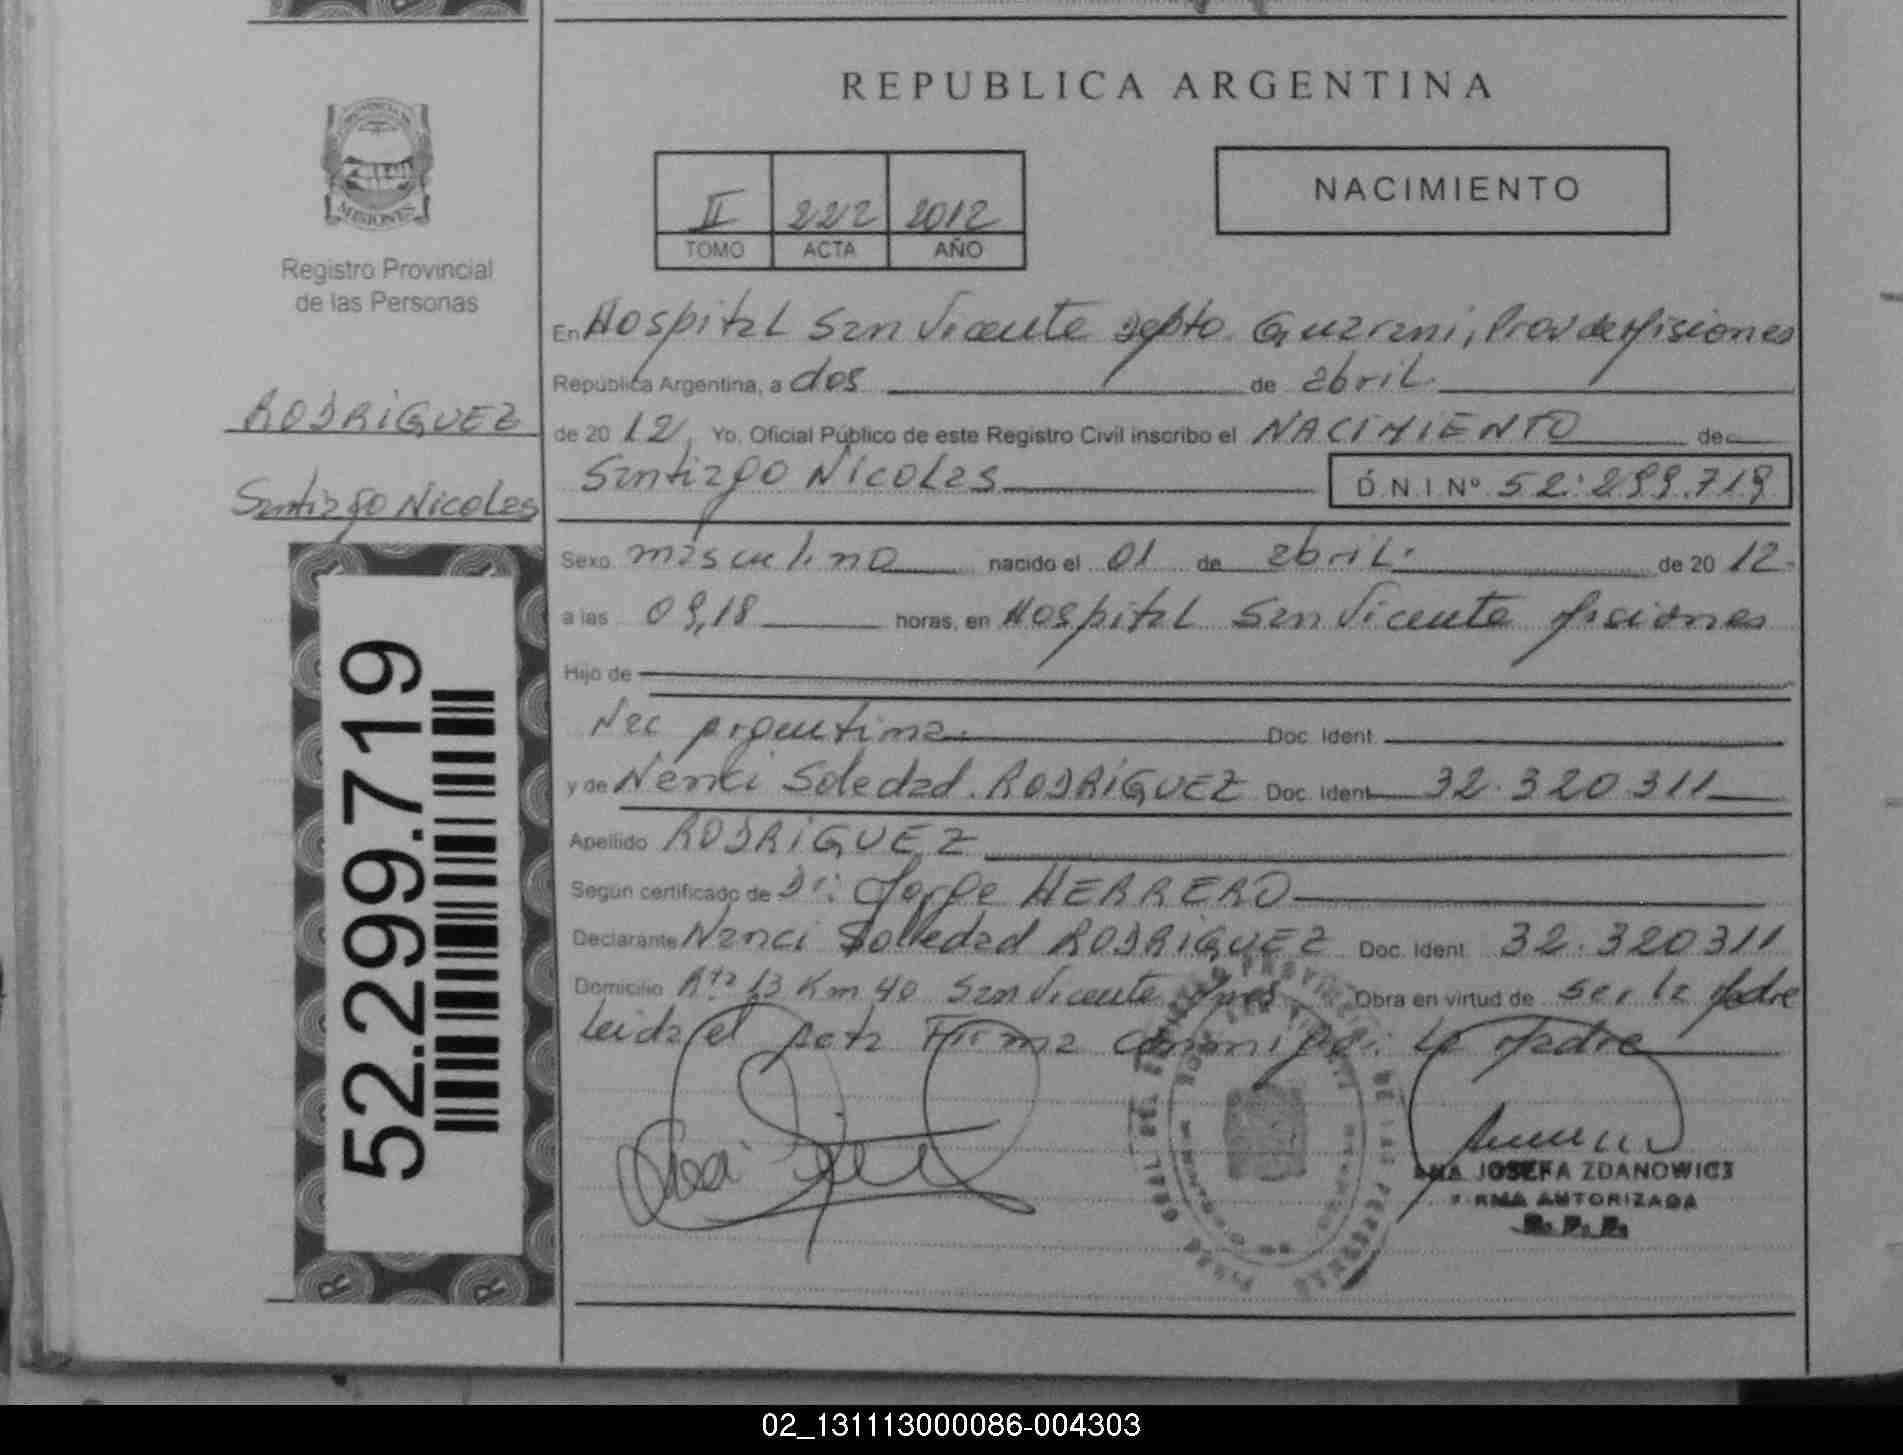 REPUBLICA ARGENTINA
NACIMIENTO
II 222 2012
TOMO ACTA AÑO
MISIONES
Registro Provincial
de las Personas
RODRIGUEZ
Santiago Nicolas
52.299.719
En Hospital San Vicente Depto. Guarani, Prov de Misiones
República Argentina, a dos de abril.
de 2012, Yo, Oficial Público de este Registro Civil inscribo el NACIMIENTO de
Santiago Nicolas D.N.I.Nº 52.299.719
Sexo masculino nacido el 01 de abril. de 2012.
a las 09,18 horas, en Hospital San Vicente Misiones
Hijo de
Nac Argentina. Doc. Ident.
y de Nanci Soledad. RODRIGUEZ Doc. Ident. 32.320.311
Apellido RODRIGUEZ
Según certificado de Dr: Jorge HERRERO
Declarante Nanci Soledad RODRIGUEZ Doc. Ident. 32.320311
Domicilio Rta 13 Km 40 San Vicente Mnes Obra en virtud de ser la Madre
Leida el Acta Firma conmigo: La Madre
ANA JOSEFA ZDANOWICZ
FIRMA AUTORIZADA
R. P. P.
02_131113000086-004303